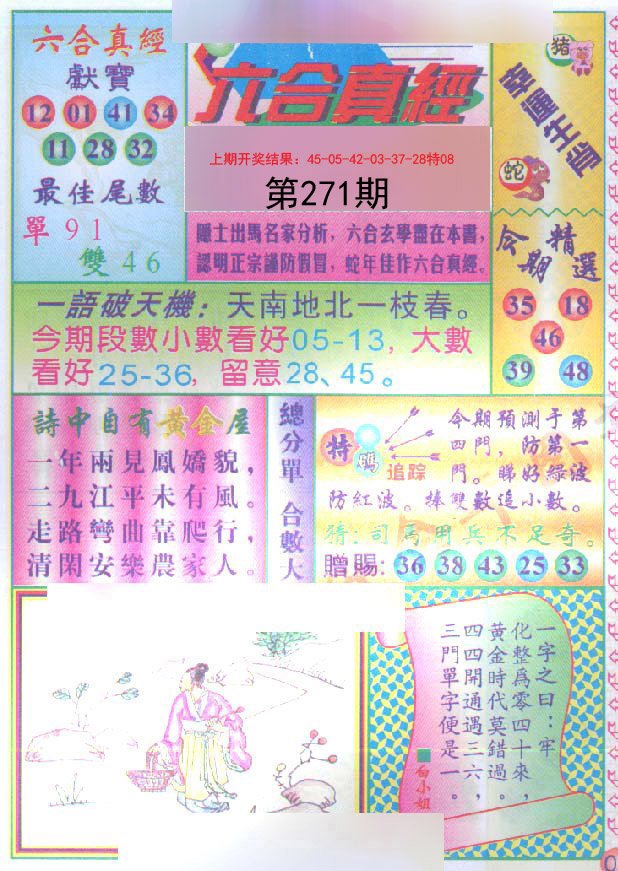 六合真經
獻寶
12 01 41 34
11 28 32
最佳尾數
單91
雙46
六合真經
上期开奖结果：45-05-42-03-37-28特08
第271期
隱士出馬名家分析，六合玄學盡在本書，
認明正宗謹防假冒，蛇年佳作六合真經。
猪
蛇
今期
精選
35 18
46
39 48
一語破天機：天南地北一枝春。
今期段數小數看好05-13，大數
看好25-36，留意28、45。
詩中自有黃金屋
一年兩見鳳嬌貌，
二九江平未有風。
走路彎曲靠爬行，
清閑安樂農家人。
總分單 合數大
特碼
追踪
今期預測于第
四門，防第一
門。睇好綠波
防紅波。捧雙數追小數。
猜：司馬用兵不足奇。
贈賜：36 38 43 25 33
一字之曰：牢
化整為零四十來，
黃金時代莫錯過，
四四開通遇三六，
三門單字便是一。
白小姐